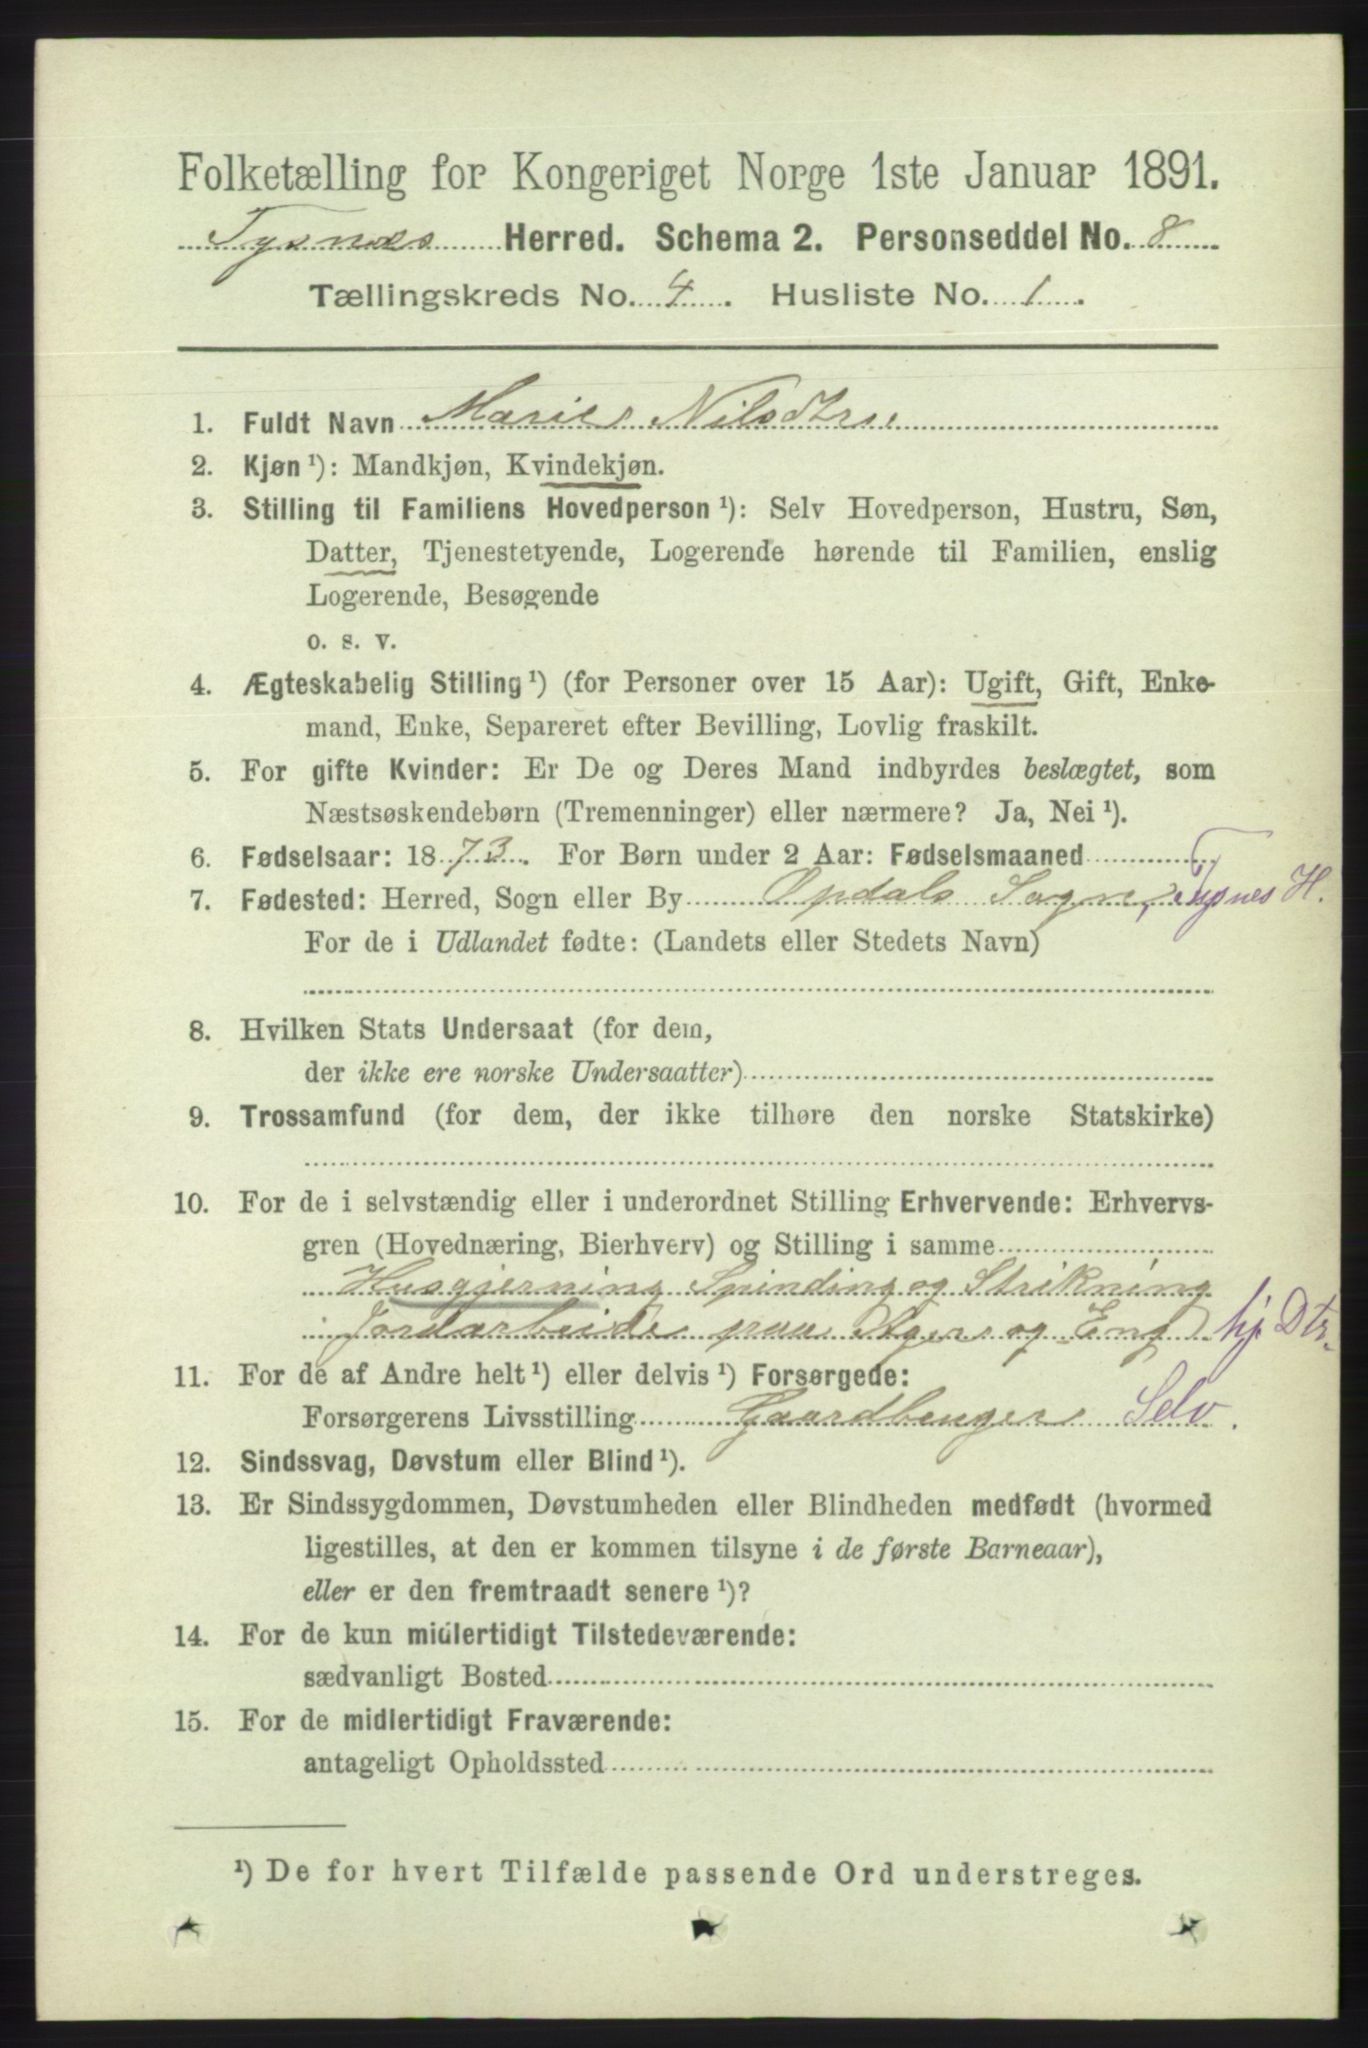 Folketælling for Kongeriget Norge 1ste Januar 1891.
Tysnæs Herred. Schema 2. Personseddel No. 8
Tællingskreds No. 4. Husliste No. 1.
1. Fuldt Navn Marie Nilsdtr.
2. Kjøn ¹): Mandkjøn, Kvindekjøn.
3. Stilling til Familiens Hovedperson ¹): Selv Hovedperson, Hustru, Søn,
Datter, Tjenestetyende, Logerende hørende til Familien, enslig
Logerende, Besøgende
o. s. v.
4. Ægteskabelig Stilling ¹) (for Personer over 15 Aar): Ugift, Gift, Enke-
mand, Enke, Separeret efter Bevilling, Lovlig fraskilt.
5. For gifte Kvinder: Er De og Deres Mand indbyrdes beslægtet, som
Næstsøskendebørn (Tremenninger) eller nærmere? Ja, Nei ¹).
6. Fødselsaar: 1873. For Børn under 2 Aar: Fødselsmaaned
7. Fødested: Herred, Sogn eller By Opdals Sogn, Tysnes H.
For de i Udlandet fødte: (Landets eller Stedets Navn)
8. Hvilken Stats Undersaat (for dem,
der ikke ere norske Undersaatter)
9. Trossamfund (for dem, der ikke tilhøre den norske Statskirke)
10. For de i selvstændig eller i underordnet Stilling Erhvervende: Erhvervs-
gren (Hovednæring, Bierhverv) og Stilling i samme
Husgjerning Spinding og Strikning
Jordarbeide paa Ager og Eng hj. Dtr.
11. For de af Andre helt ¹) eller delvis ¹) Forsørgede:
Forsørgerens Livsstilling Gaardbruger Selv.
12. Sindssvag, Døvstum eller Blind ¹).
13. Er Sindssygdommen, Døvstumheden eller Blindheden medfødt (hvormed
ligestilles, at den er kommen tilsyne i de første Barneaar),
eller er den fremtraadt senere ¹)?
14. For de kun midlertidigt Tilstedeværende:
sædvanligt Bosted
15. For de midlertidigt Fraværende:
antageligt Opholdssted
¹) De for hvert Tilfælde passende Ord understreges.